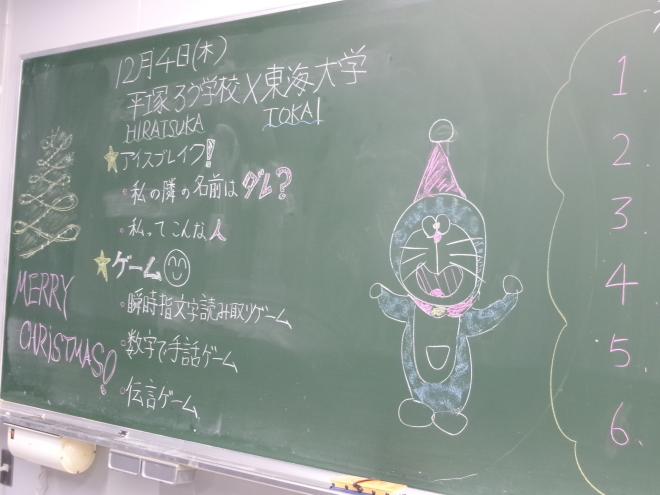 12月4日(木)
平塚ろう学校×東海大学
HIRATSUKA TOKAI
アイスブレイク!
・私の隣の名前はダレ?
・私ってこんな人
ゲーム
・瞬時指文字読み取りゲーム
・数字で手話ゲーム
・伝言ゲーム
MERRY
CHRiSTMAS!
1.
2.
3.
4
5.
6.